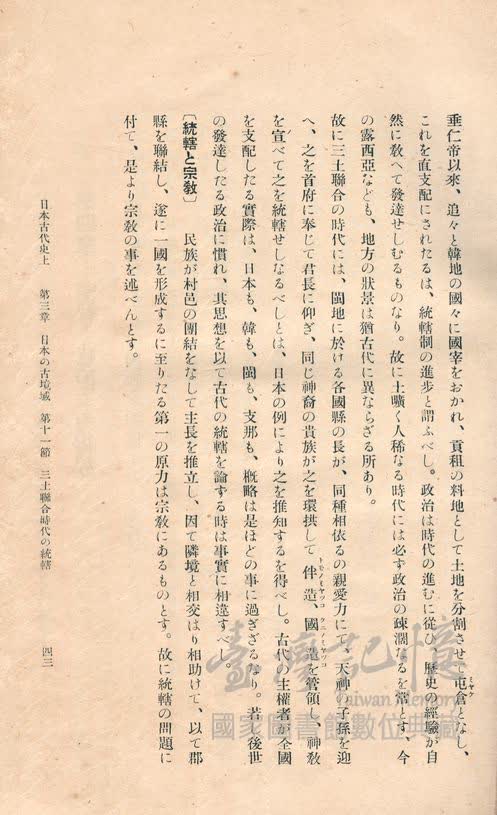 垂仁帝以來、追々と韓地の國々に國宰をおかれ、貢租の料地として土地を分割させ、屯倉となし、
ミヤケ
これを直支配にされたるは、統轄制の進步と謂ふべし。政治は時代の進むに從ひ、歷史の經驗が自
然に敎へて發達せしむるものなり。故に土曠く人稀なる時代には必ず政治の疎濶なるを常とす、今
の露西亞なども、地方の狀景は猶古代に異ならざる所あり。
故に三土聯合の時代には、閩地に於ける各國縣の長が、同種相依るの親愛力にて、天神の子孫を迎
へ、之を首府に奉じて君長に仰ぎ、同じ神裔の貴族が之を環拱して伴造、國造を管領し、神敎
トモノミヤツコ クニノミヤツコ
を宣べて之を統轄せしなるべしとは、日本の例により之を推知するを得べし。古代の主權者が全國
を支配したる實際は、日本も、韓も、閩も、支那も、槪略は是ほどの事に過ぎざるなり。若し後世
の發達したる政治に慣れ、其思想を以て古代の統轄を論ずる時は事實に相違すべし。
〔統轄と宗敎〕 民族が村邑の團結をなして主長を推立し、因て隣境と相交はり相助けて、以て郡
縣を聯結し、遂に一國を形成するに至りたる第一の原力は宗敎にあるものとす。故に統轄の問題に
付て、是より宗敎の事を述べんとす。
日本古代史上 第三章 日本の古境域 第十一節 三土聯合時代の統轄 四三
臺灣記憶
Taiwan Memory
國家圖書館數位典藏